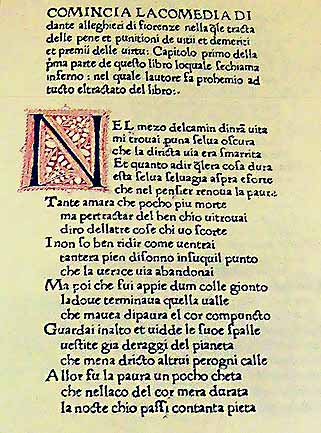 COMINCIA LACOMEDIA DI
dante alleghieri di fiorenze nella q̄le tracta
delle pene et punitioni de uitii et demeriti
et premii delle uirtu: Capitolo primo della
p̄ma parte de questo libro loquale sechiama
inferno: nel quale lautore fa prohemio ad
tucto eltractato del libro:.
NEL mezo delcamin dinr̄a uita
mi trouai puna selua oscura
che la diricta uia era smarrita
Et quanto adir q̄lera cosa dura
esta selua seluagia aspra eforte
che nel pensier renoua la paura
Tante amara che pocho piu morte
ma pertractar del ben chio uitrouai
diro dellatre cose chi uo scorte
I non so ben ridir come uentrai
tantera pien disonno insuquil punto
che la uerace uia abandonai
Ma poi che fui appie dum colle gionto
ladoue terminaua quella ualle
che mauea dipaura el cor compuncto
Guardai inalto et uidde le suoe spalle
uestite gia deraggi del pianeta
che mena dricto altrui perogni calle
Allor fu la paura un pocho cheta
che nellaco del cor mera durata
la nocte chio passi contanta pieta